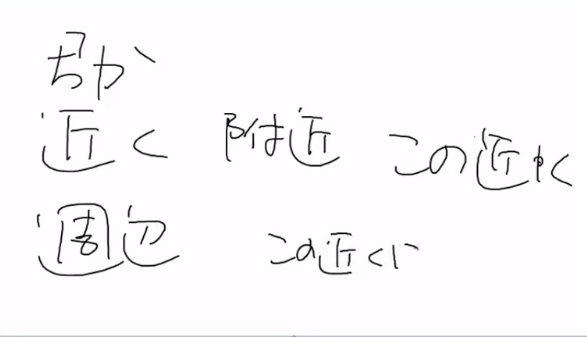 近く 附近 この近く
週辺 この近くに